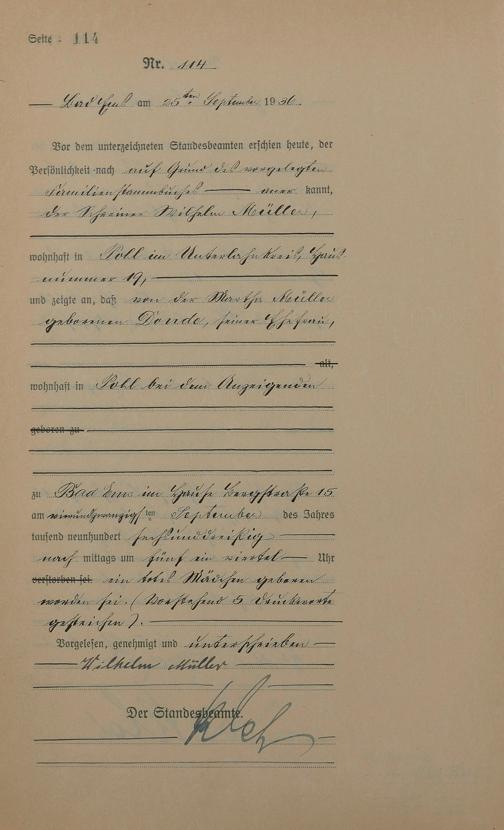 Seite - 114
Nr. 114
Bad Ems am 25ten September 1936.
Vor dem unterzeichneten Standesbeamten erschien heute, der
Persönlichkeit nach auf Grund des vorgelegten
Familienstammbuches aner kannt,
der Schreiner Wilhelm Müller,
wohnhaft in Pohl im Unterlahnkreis, Haus
nummer 19,
und zeigte an, daß von der Martha Müller
geborenen Donde, seiner Ehefrau,
alt,
wohnhaft in Pohl bei dem Anzeigenden
geboren zu
zu Bad Ems im Hause Bergstraße 15
am vierundzwanzigsten September des Jahres
tausend neunhundert sechsunddreißig
nach mittags um fünf ein viertel Uhr
verstorben sei. ein totes Mädchen geboren
worden sei. (Vorstehend 5 Druckworte
gestrichen).
Vorgelesen, genehmigt und unterschrieben
Wilhelm Müller
Der Standesbeamte.